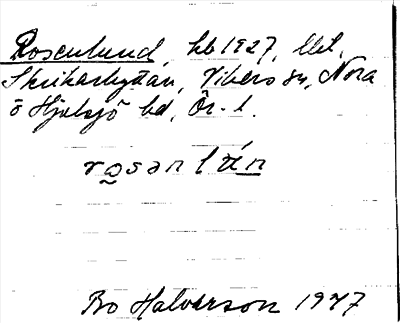 Rosenlund, hb 1927, lht,
Skrikarhyttan, Vikers sn, Nora
o Hjulsjö bd, Ör. l.
ro̰sənlún
Bo Halvarson 1947